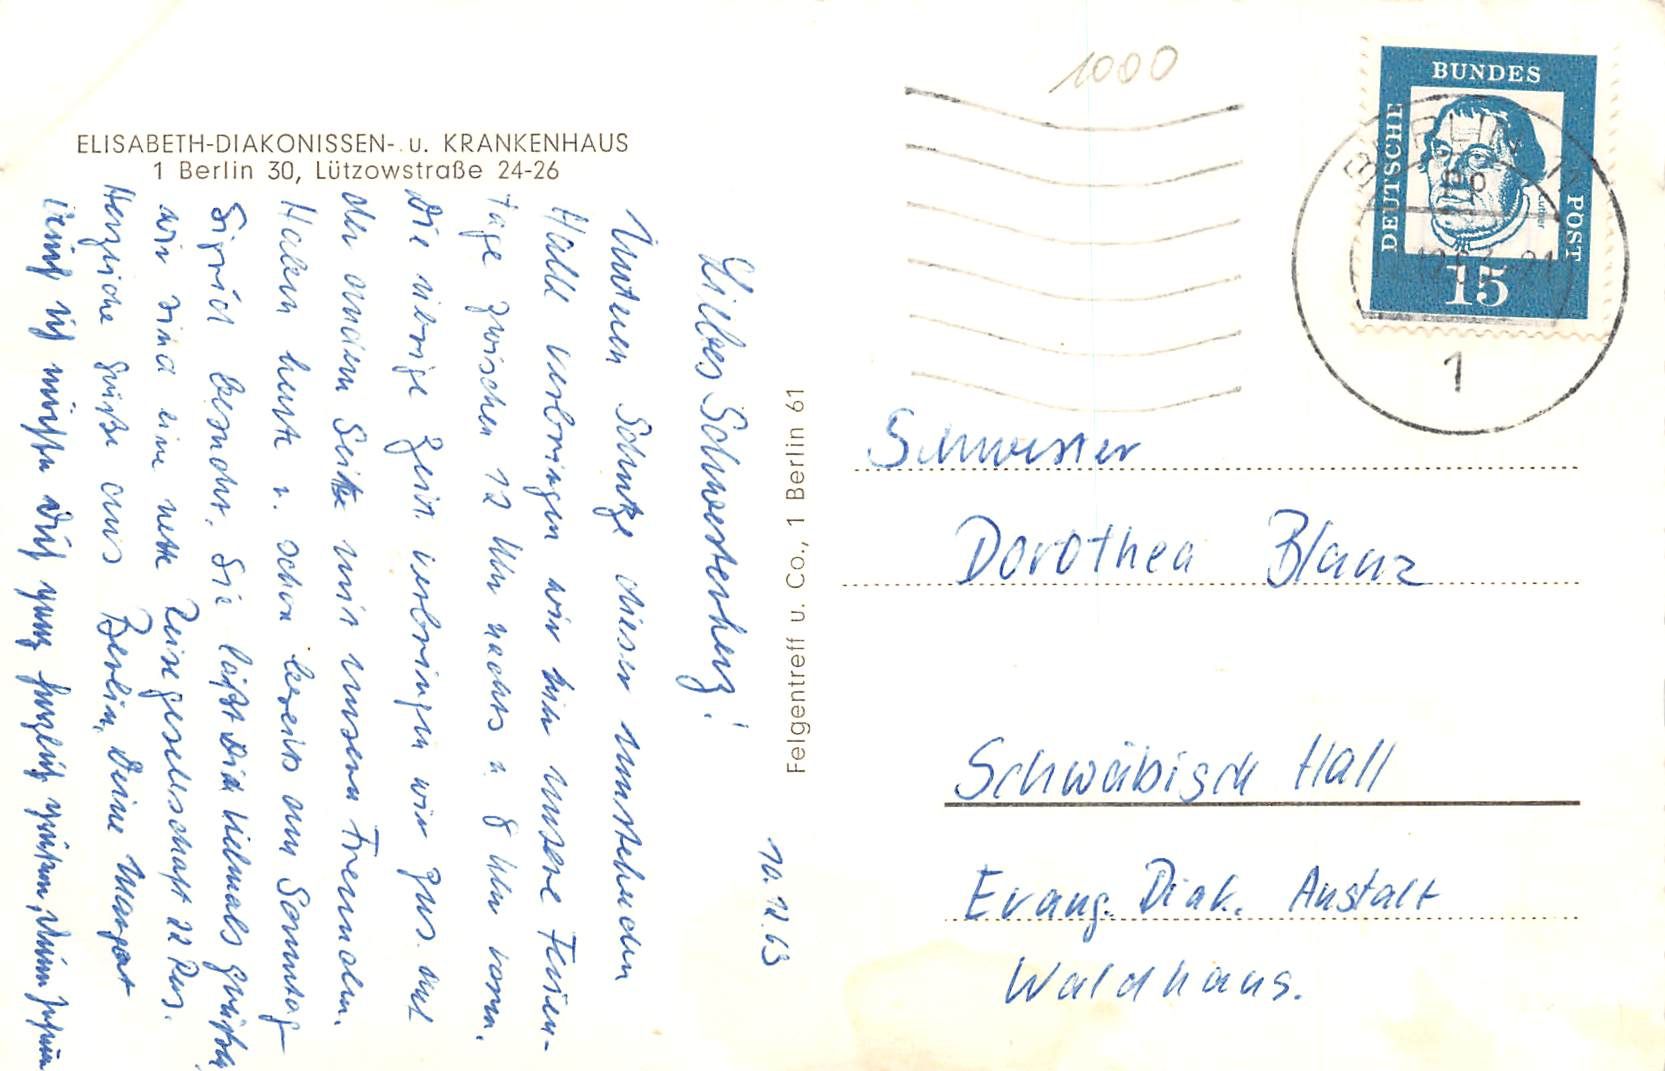 ELISABETH-DIAKONISSEN- u. KRANKENHAUS
1 Berlin 30, Lützowstraße 24-26
10.12.63
Liebes Schwesterherz!
Unterm Schutze dieser umstehenden
Halle verbringen wir hier unsere Ferien-
tage zwischen 12 Uhr nachts u. 8 Uhr vorm.
Die übrige Zeit verbringen wir zus. auf
der andern Seite mit unsern Freunden.
Haben heute u. schon bereits am Sonntag
Sigrid besucht. Sie läßt Dich vielmals grüßen,
wir sind eine nette Reisegesellschaft 22 Pers.
Herzliche Grüße aus Berlin, Deine Margret
Auch ich möchte Dich ganz herzlich grüßen, Deine
Felgentreff u. Co., 1 Berlin 61
1000
DEUTSCHE BUNDES POST
15
BERLIN
1
Schwester
Dorothea Blanz
Schwäbisch Hall
Evang. Diak. Anstalt
Waldhaus.